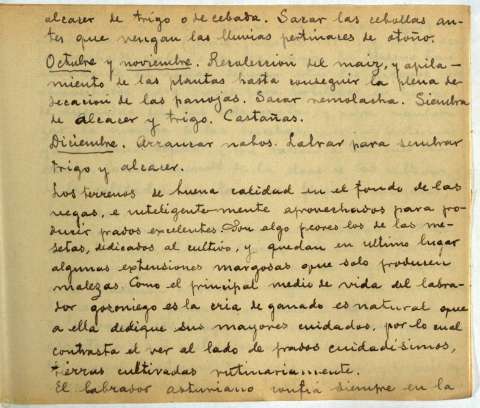 alcacer de trigo o de cebada. Sacar las cebollas an-
tes que vengan las lluvias pertinaces de otoño.
Octubre y noviembre. Recolección del maiz, y apila-
miento de las plantas hasta conseguir la plena de-
secación de las panojas. Sacar remolacha. Siembra
de alcacer y trigo. Castañas.
Diciembre. Arrancar nabos. Labrar para sembrar
trigo y alcacer.
Los terrenos de buena calidad en el fondo de las
vegas, e inteligente-mente aprovechados para pro-
ducir prados excelentes. Son algo peores los de las me-
setas, dedicados al cultivo, y quedan en ultimo lugar
algunas extensiones margosas que solo producen
malezas. Como el principal medio de vida del labra-
dor gozoniego es la cria de ganado es natural que
a ella dedique sus mayores cuidados, por lo cual
contrasta el ver al lado de prados cuidadisimos,
tierras cultivadas rutinariamente.
El labrador asturiano confia siempre en la